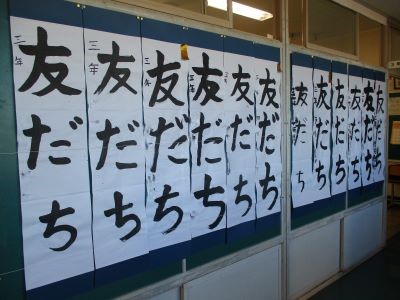 友だち
三年
友だち
三年
友だち
三年
友だち
三年
友だち
友だち
友だち
友だち
友だち
友だち
友だち
友だち